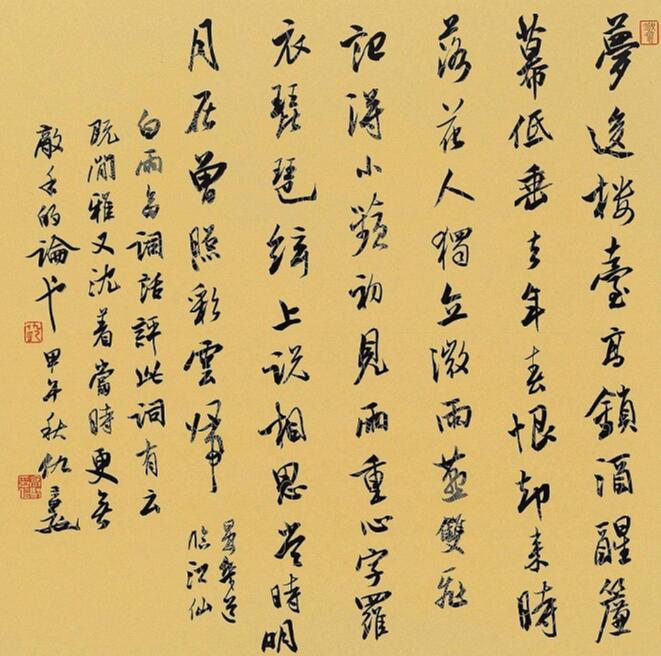 夢後楼臺高鎖酒醒簾
幕低垂去年春恨却来時
落花人獨立微雨燕雙飛
記得小蘋初見兩重心字羅
衣琵琶絃上说相思當時明
月在曾照彩雲歸
晏幾道
临江仙
白雨斋詞話評此詞有云
既閒雅又沈着當時更無
敵手的論也 甲午秋